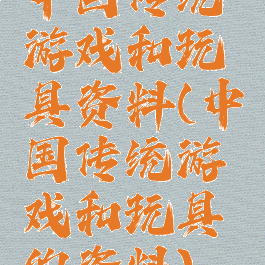 中国传统
游戏和玩
具资料(中
国传统游
戏和玩具
的资料)